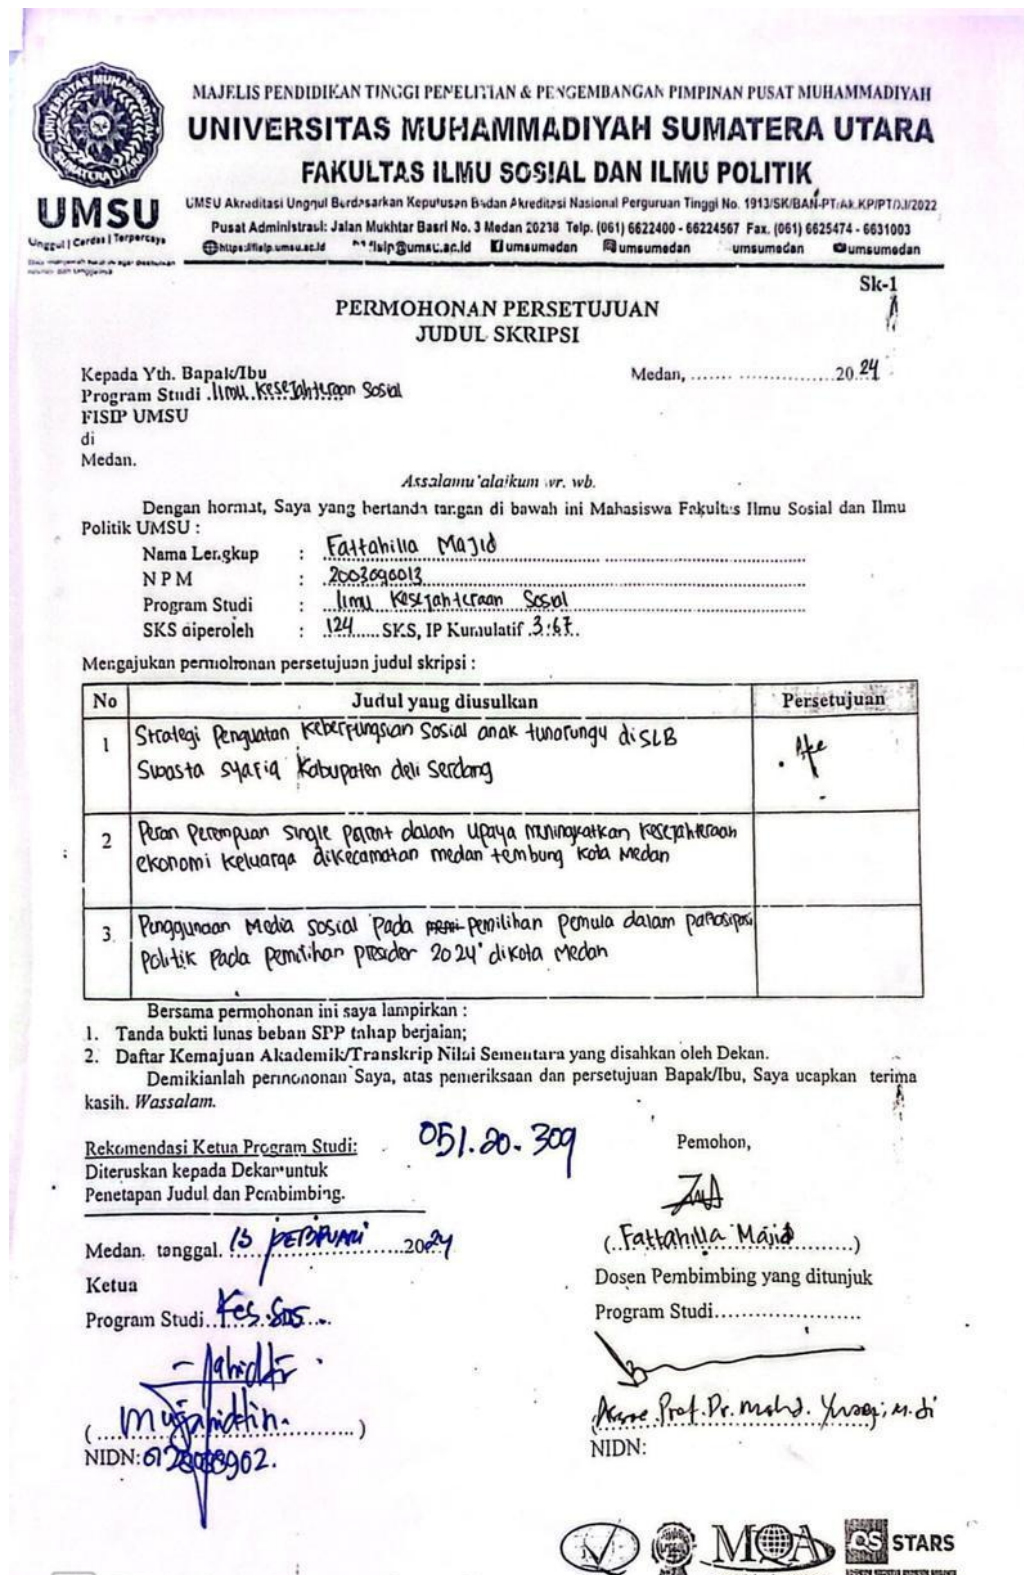 MAJELIS PENDIDIKAN TINGGI PENELITIAN & PENGEMBANGAN PIMPINAN PUSAT MUHAMMADIYAH
UNIVERSITAS MUHAMMADIYAH SUMATERA UTARA
FAKULTAS ILMU SOSIAL DAN ILMU POLITIK
UMSU
Unggul | Cerdas | Terpercaya
UMSU Akreditasi Unggul Berdasarkan Keputusan Badan Akreditasi Nasional Perguruan Tinggi No. 1913/SK/BAN-PT/Ak.KP/PT/XI/2022
Pusat Administrasi: Jalan Mukhtar Basri No. 3 Medan 20238 Telp. (061) 6622400 - 66224567 Fax. (061) 6625474 - 6631003
https://fisip.umsu.ac.id fisip@umsu.ac.id umsumedan umsumedan umsumedan umsumedan
Sk-1
PERMOHONAN PERSETUJUAN
JUDUL SKRIPSI
Kepada Yth. Bapak/Ibu Medan, ...... ...................20.24
Program Studi .Ilmu Kesejahteraan Sosial
FISIP UMSU
di
Medan.
Assalamu'alaikum wr. wb.
Dengan hormat, Saya yang bertanda tangan di bawah ini Mahasiswa Fakultas Ilmu Sosial dan Ilmu
Politik UMSU :
Nama Lengkap : Fattahilla Majid
N P M : 2003090013
Program Studi : Ilmu Kesejahteraan Sosial
SKS diperoleh : 124 ...... SKS, IP Kumulatif .3.67.
Mengajukan permohonan persetujuan judul skripsi :
No Judul yang diusulkan Persetujuan
1 Strategi Penguatan Keberfungsian Sosial anak tunarungu di SLB
Swasta syafiq Kabupaten deli Serdang
2 Peran Perempuan Single Parent dalam upaya meningkatkan Kesejahteraan
ekonomi keluarga dikecamatan medan tembung kota Medan
3. Penggunaan Media sosial Pada Pemilihan Pemula dalam partisipasi
Politik Pada Pemilihan presider 2024 dikota Medan
Bersama permohonan ini saya lampirkan :
1. Tanda bukti lunas beban SPP tahap berjalan;
2. Daftar Kemajuan Akademik/Transkrip Nilai Sementara yang disahkan oleh Dekan.
Demikianlah permohonan Saya, atas pemeriksaan dan persetujuan Bapak/Ibu, Saya ucapkan terima
kasih. Wassalam.
051.20.309
Rekomendasi Ketua Program Studi: Pemohon,
Diteruskan kepada Dekan untuk
Penetapan Judul dan Pembimbing.
Medan, tanggal. 15 FEBRUARI ......2024
(..Fattahilla Majid............)
Ketua Dosen Pembimbing yang ditunjuk
Program Studi..Kes.Sos... Program Studi....................
(...Mujahiddin................)
NIDN: 0128088902.
Prof. Dr. Mohd. Yusri, M.Si
NIDN:
MQA
QS STARS